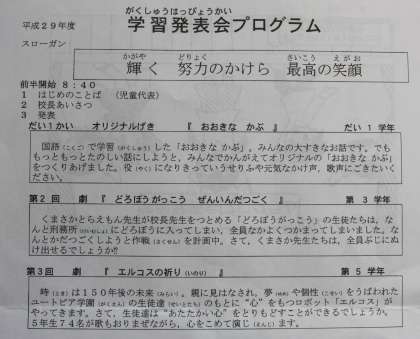 がくしゅうはっぴょうかい
平成２９年度 学習発表会プログラム
スローガン
かがや どりょく さいこう えがお
輝く 努力のかけら 最高の笑顔
前半開始 ８：４０
１ はじめのことば （児童代表）
２ 校長あいさつ
３ 発表
だい１かい オリジナルげき 『 おおきな かぶ 』 だい １ 学年
国語（こくご）で学習（がくしゅう）した「おおきな かぶ」。みんなの大すきなお話です。でも
もっともっとたのしい話にしようと、みんなでかんがえてオリジナルの「おおきな かぶ」
をつくりあげました。役（やく）になりきっていうせりふや元気なかけ声、歌声にごきたいく
ださい。
第２回 劇 『 どろぼうがっこう ぜんいんだつごく 』 第 ３ 学年
くまさかとらえもん先生が校長先生をつとめる「どろぼうがっこう」の生徒たちは、な
んと刑務所（けいむしょ）にどろぼうに入ってしまい、全員なかよくつかまってしまいました。な
んとかだつごくしようと作戦（さくせん）を計画中。さて、くまさか先生たちは、全員ぶじにぬ
け出せるでしょうか!!
第３回 劇 『 エルコスの祈り（いのり） 』 第 ５ 学年
時（とき）は１５０年後の未来（みらい）。親に見はなされ、夢（ゆめ）や個性（こせい）をうばわれた
ユートピア学園（がくえん）の生徒達（せいとたち）のもとに“心”をもつロボット「エルコス」が
やってきます。さて、生徒達は“あたたかい心”をとりもどすことができるでしょうか。
５年生７４名が歌もおりまぜながら、心をこめて演じ（えんじ）ます。